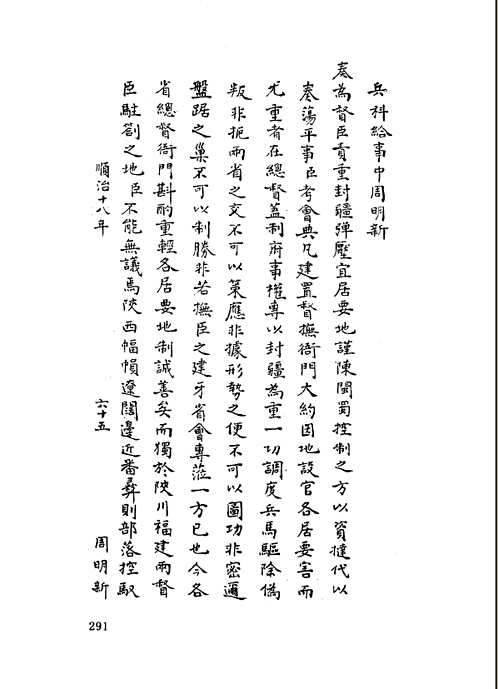 兵科給事中周明新
奏為督臣責重封疆彈壓宜居要地謹陳閩蜀控制之方以資撻伐以
奏蕩平事臣考會典凡建置督撫衙門大約因地設官各居要害而
尤重者在總督蓋制府事權專以封疆為重一切調度兵馬驅除偽
叛非扼兩省之交不可以策應非據形勢之便不可以圖功非密邇
盤踞之巢不可以制勝非若撫臣之建牙省會專蒞一方已也今各
省總督衙門斟酌重輕各居要地制誠善矣而獨於陝川福建兩督
臣駐劄之地臣不能無議焉陝西幅幀遼闊邊近番彝則部落控馭
順治十八年 六十五 周明新
291